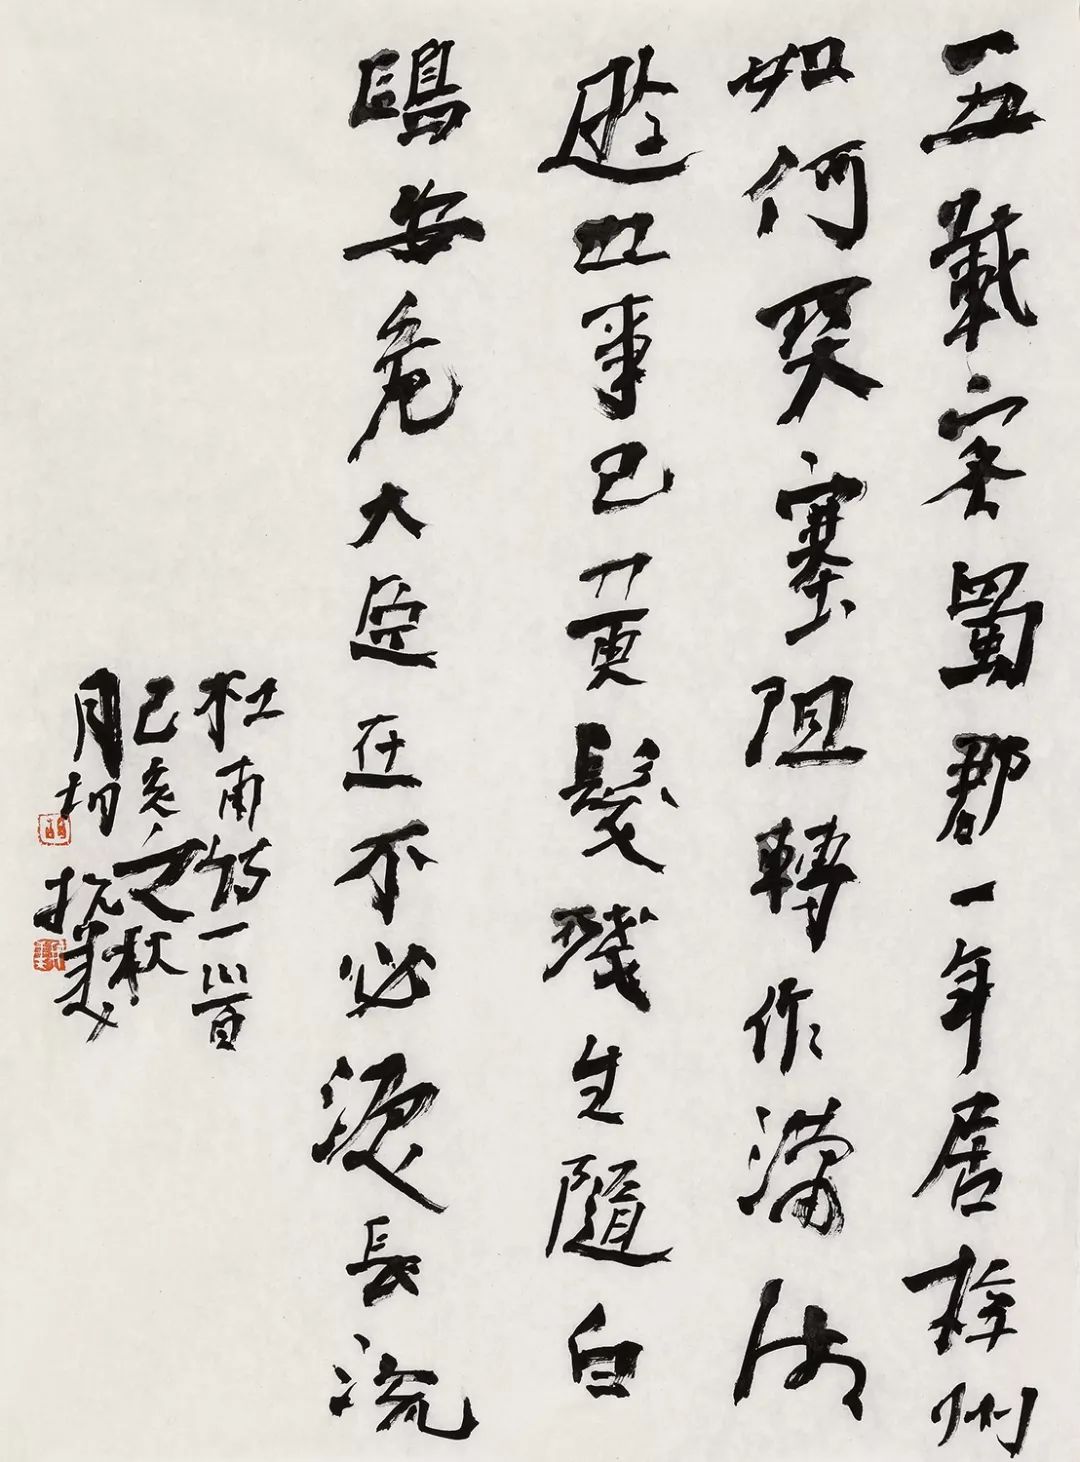 五載客蜀郡一年居梓州
如何關塞阻轉作瀟湘
遊世事已黃髮殘生隨白
鷗安危大臣在不必淚長流
杜甫詩一首
己亥之秋
月初